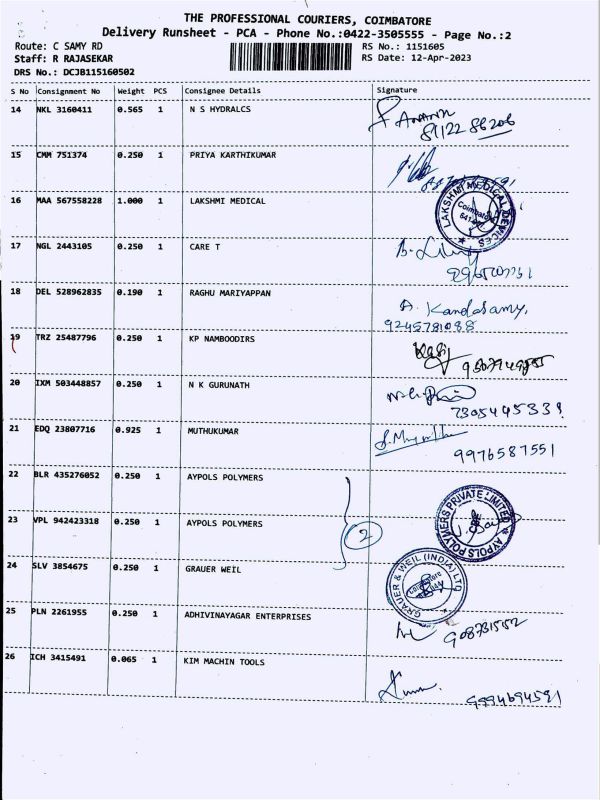 THE PROFESSIONAL COURIERS, COIMBATORE
Delivery Runsheet - PCA - Phone No.:0422-3505555 - Page No.:2
Route: C SAMY RD RS No.: 1151605
Staff: R RAJASEKAR RS Date: 12-Apr-2023
DRS No.: DCJB115160502
S No Consignment No Weight PCS Consignee Details Signature
14 NKL 3160411 0.565 1 N S HYDRALCS
81122 86206
15 CMM 751374 0.250 1 PRIYA KARTHIKUMAR
16 MAA 567558228 1.000 1 LAKSHMI MEDICAL
LAKSHMI MEDICAL DEVICES
Coimbatore
17 NGL 2443105 0.250 1 CARE T
18 DEL 528962835 0.190 1 RAGHU MARIYAPPAN
A. Kandasamy,
9245781088
19 TRZ 25487796 0.250 1 KP NAMBOODIRS
20 IXM 503448857 0.250 1 N K GURUNATH
7305445339
21 EDQ 23807716 0.925 1 MUTHUKUMAR
9976587551
22 BLR 435276052 0.250 1 AYPOLS POLYMERS
23 VPL 942423318 0.250 1 AYPOLS POLYMERS
2
AYPOLS POLYMERS PRIVATE LIMITED
24 SLV 3854675 0.250 1 GRAUER WEIL
GRAUER & WEIL (INDIA) LTD
Coimbatore
25 PLN 2261955 0.250 1 ADHIVINAYAGAR ENTERPRISES
26 ICH 3415491 0.065 1 KIM MACHIN TOOLS
9994694591